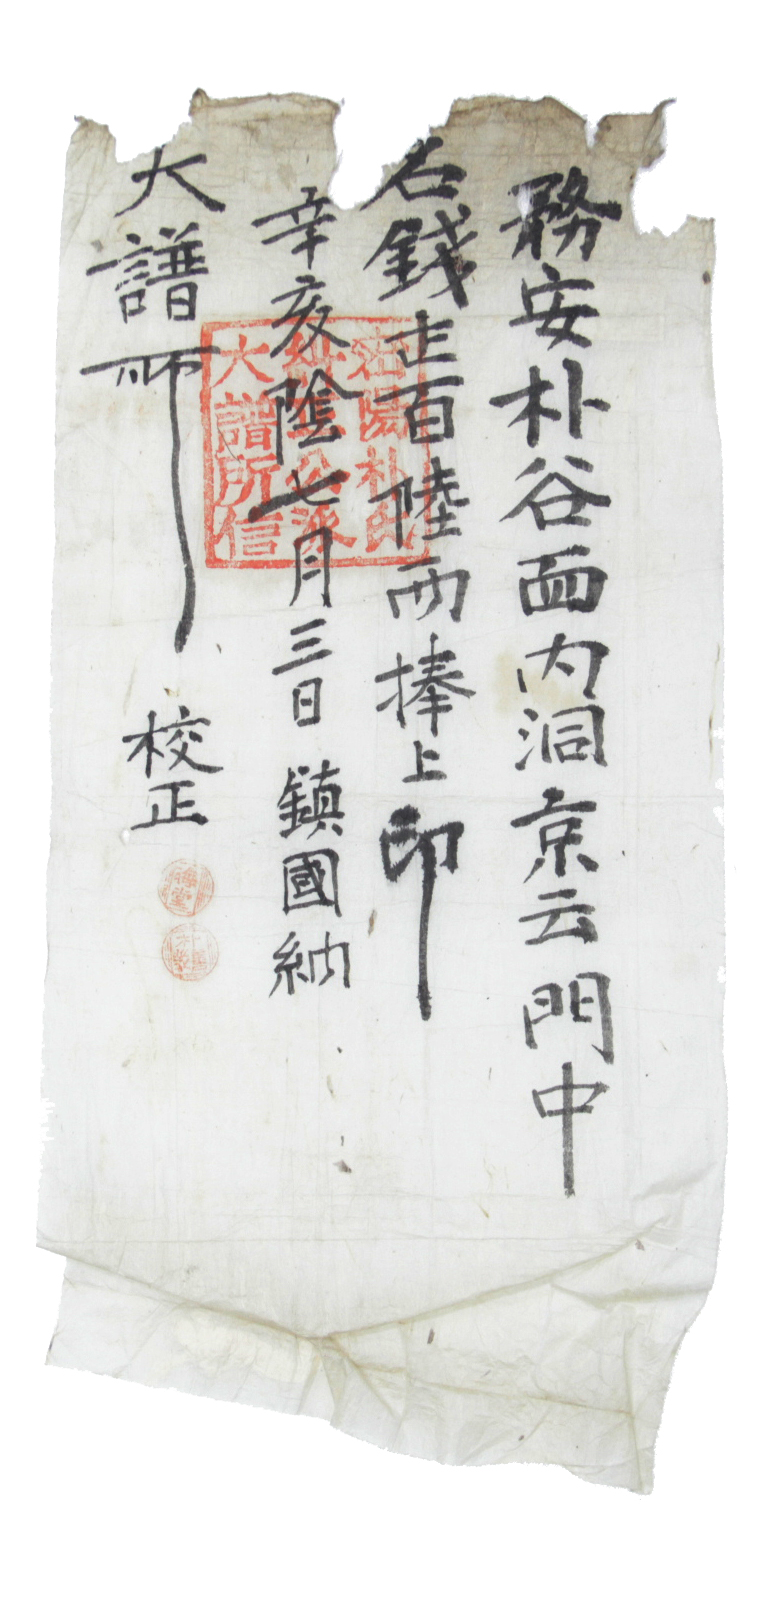 務安朴谷面內洞京云門中
名錢壱百陸両捧上印
辛亥陰七月三日 鎮國納
大譜所 校正
密陽朴氏
公派
大譜所信